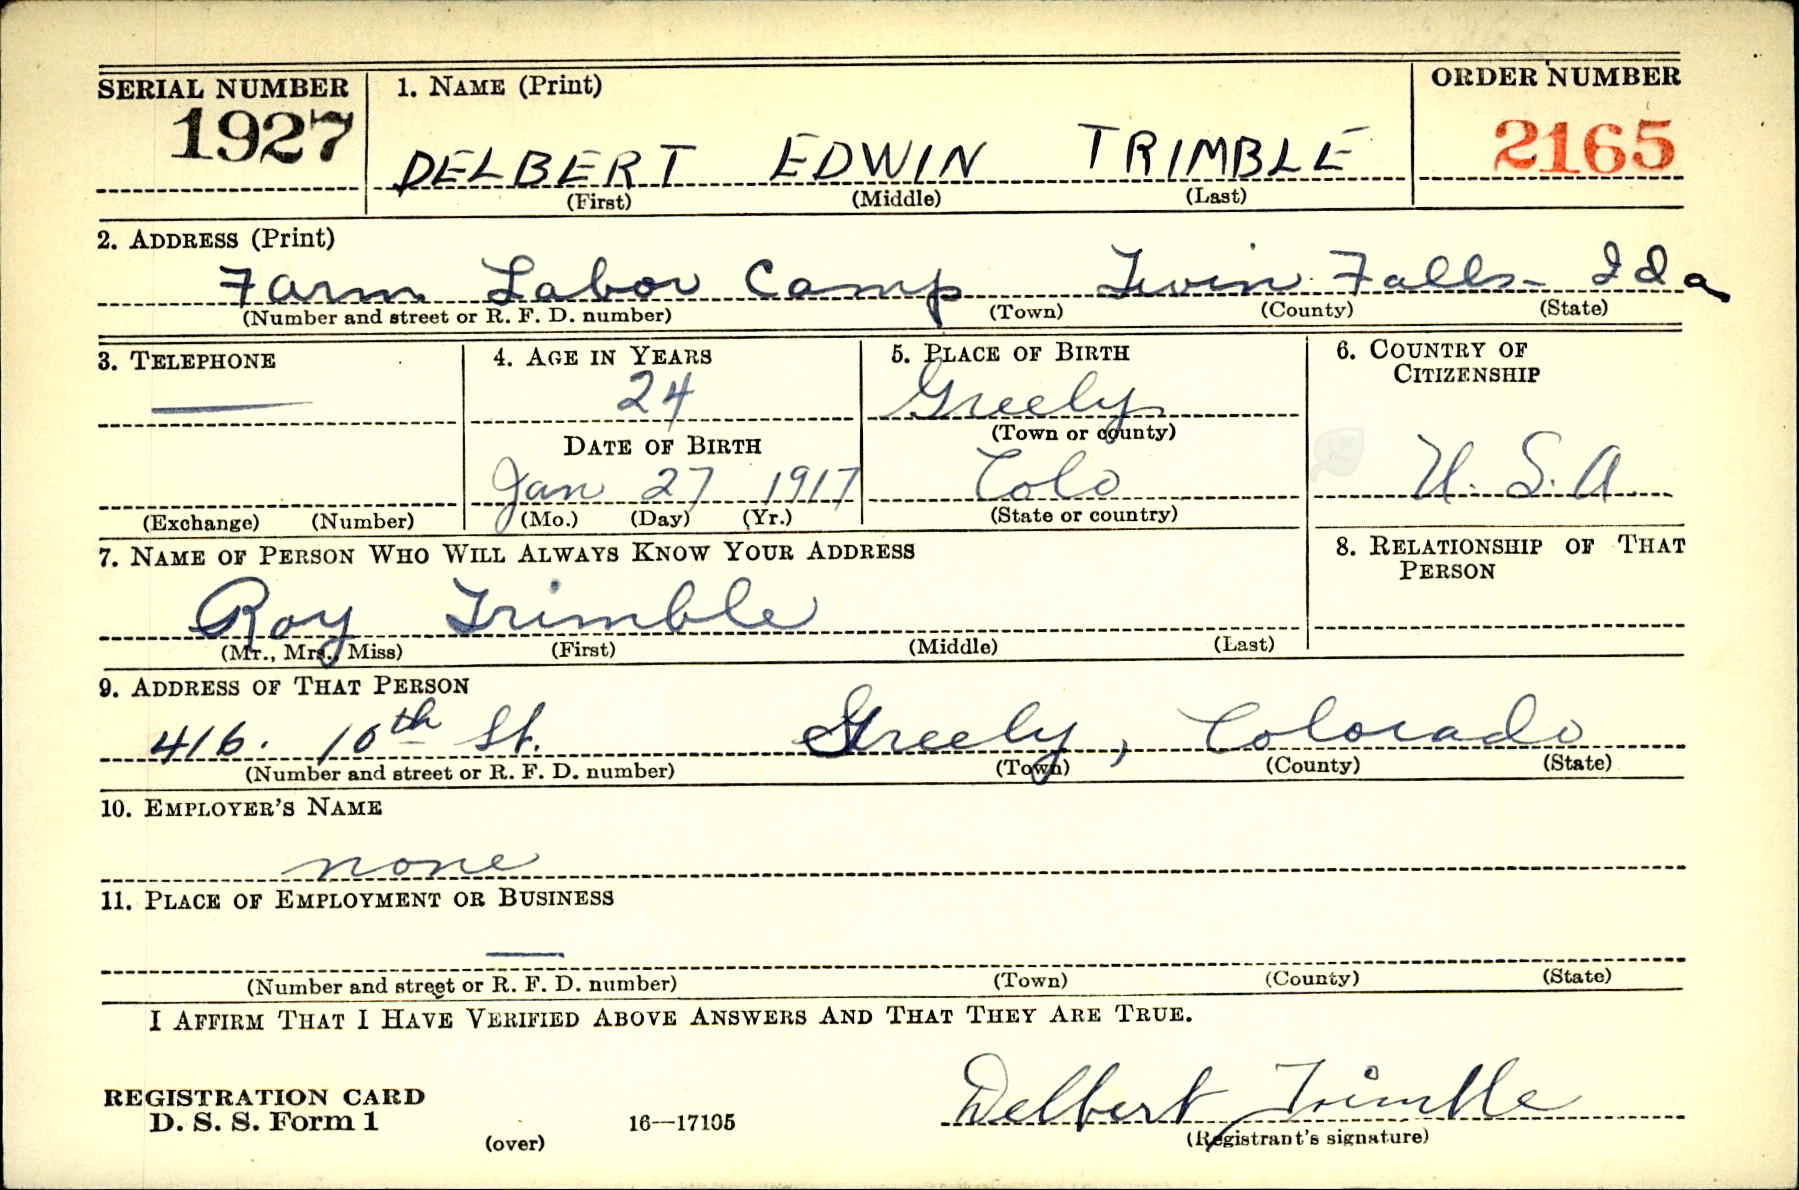 SERIAL NUMBER 1. NAME (Print) ORDER NUMBER
1927 DELBERT EDWIN TRIMBLE 2165
(First) (Middle) (Last)
2. ADDRESS (Print)
Farm Labor Camp Twin Falls - Ida
(Number and street or R. F. D. number) (Town) (County) (State)
3. TELEPHONE 4. AGE IN YEARS 5. PLACE OF BIRTH 6. COUNTRY OF CITIZENSHIP
— 24 Greely
(Town or county)
DATE OF BIRTH
Jan 27 1917 Colo U. S. A
(Exchange) (Number) (Mo.) (Day) (Yr.) (State or country)
7. NAME OF PERSON WHO WILL ALWAYS KNOW YOUR ADDRESS 8. RELATIONSHIP OF THAT PERSON
Roy Trimble
(Mr., Mrs., Miss) (First) (Middle) (Last)
9. ADDRESS OF THAT PERSON
416. 10th St. Greely, Colorado
(Number and street or R. F. D. number) (Town) (County) (State)
10. EMPLOYER'S NAME
none
11. PLACE OF EMPLOYMENT OR BUSINESS
—
(Number and street or R. F. D. number) (Town) (County) (State)
I AFFIRM THAT I HAVE VERIFIED ABOVE ANSWERS AND THAT THEY ARE TRUE.
Delbert Trimble
REGISTRATION CARD
D. S. S. Form 1 16—17105 (Registrant's signature)
(over)